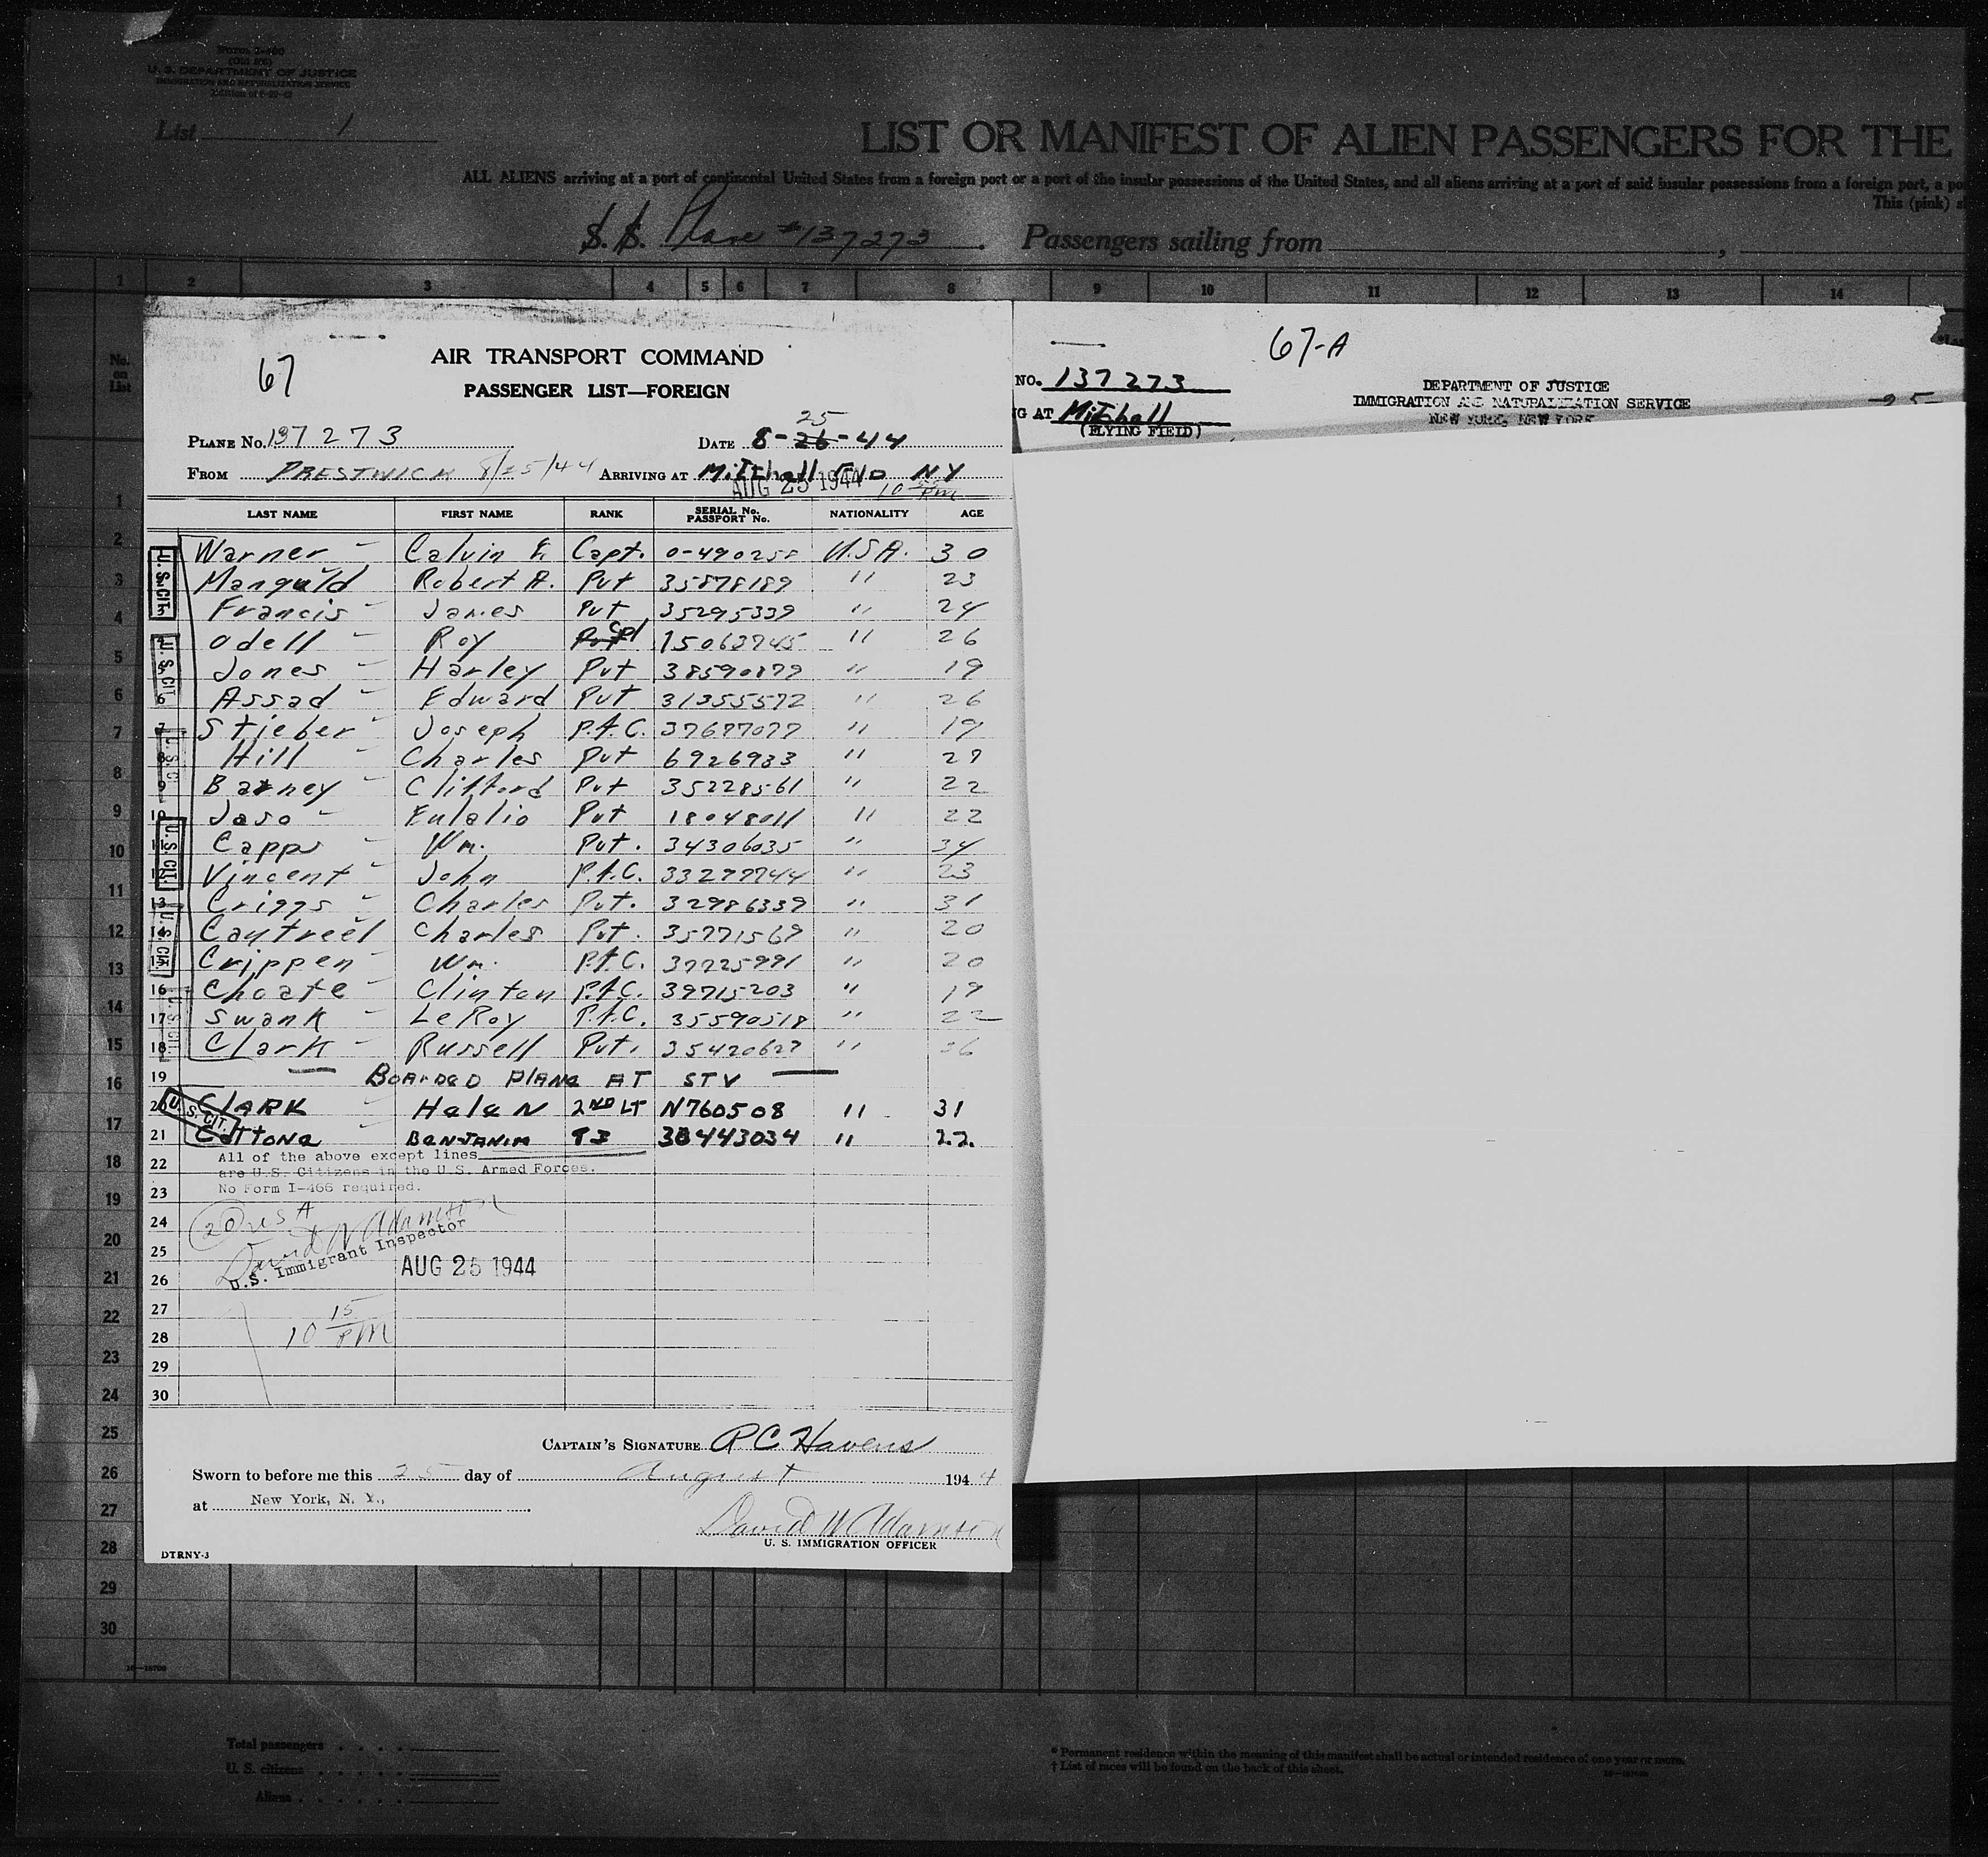 Form I-
U. S. DEPARTMENT OF JUSTICE
IMMIGRATION AND NATURALIZATION SERVICE
List 1
LIST OR MANIFEST OF ALIEN PASSENGERS FOR THE
ALL ALIENS arriving at a port of continental United States from a foreign port or a port of the insular possessions of the United States, and all aliens arriving at a port of said insular possessions from a foreign port, a po
This (pink) s
S. S. Plane #137273 . Passengers sailing from ,
1 2 3 4 5 6 7 8 9 10 11 12 13 14
No. on List
67
AIR TRANSPORT COMMAND
PASSENGER LIST—FOREIGN
25
PLANE No. 137273 DATE 8-26-44
FROM PRESTWICK 8/25/44 ARRIVING AT Mitchell FLD N.Y
AUG 25 1944 10 PM
LAST NAME FIRST NAME RANK SERIAL No. PASSPORT No. NATIONALITY AGE
Warner Calvin Capt. U.S.A. 30
Manguld Robert A. Pvt 35878189 " 23
Francis James Pvt 35295339 " 24
Odell Roy Cpl 15063745 " 26
Jones Harley Pvt 38590879 " 19
Assad Edward Pvt 31355572 " 26
Stieber Joseph P.f.C. 37677077 " 19
Hill Charles Pvt 6926933 " 27
Barney Clifford Pvt 35228561 " 22
10 Jaso Eulalio Pvt 18048011 " 22
Capps Wm. Pvt. 34306035 " 34
Vincent John P.f.C. 33277744 " 23
13 Griggs Charles Pvt. 32986339 " 31
14 Cantreel Charles Pvt. 35771569 " 20
Crippen Wm. P.f.C. 37725991 " 20
16 Choate Clinton P.f.C. 39715203 " 19
17 Swank LeRoy P.f.C. 35590518 " 22
18 Clark Russell Pvt. 35420627 " 36
19 BOARDED PLANE AT STV
20 CLARK Helen 2ND LT N760508 " 31
21 Cottone BENJAMIN T3 " 22
U. S. CIT.
U. S. CIT.
U. S. CIT.
U. S. CIT.
U. S. CIT.
U. S. CIT.
All of the above except lines
22 are U.S. Citizens in the U.S. Armed Forces.
23 No Form I-466 required.
24 20 USA
25 David W Adamson
U.S. Immigrant Inspector
26 AUG 25 1944
27
28 10 15 PM
29
30
CAPTAIN'S SIGNATURE R.C. Havens
Sworn to before me this 25 day of August 1944
at New York, N. Y.,
David W Adamson
U. S. IMMIGRATION OFFICER
DTRNY-3
67-A
NO. 137273
G AT Mitchell
(FLYING FIELD)
DEPARTMENT OF JUSTICE
IMMIGRATION AND NATURALIZATION SERVICE
NEW YORK, NEW YORK
1
2
3
4
5
6
7
8
9
10
11
12
13
14
15
16
17
18
19
20
21
22
23
24
25
26
27
28
29
30
Total passengers
U. S. citizens
Aliens
* Permanent residence within the meaning of this manifest shall be actual or intended residence of one year or more.
† List of races will be found on the back of this sheet.